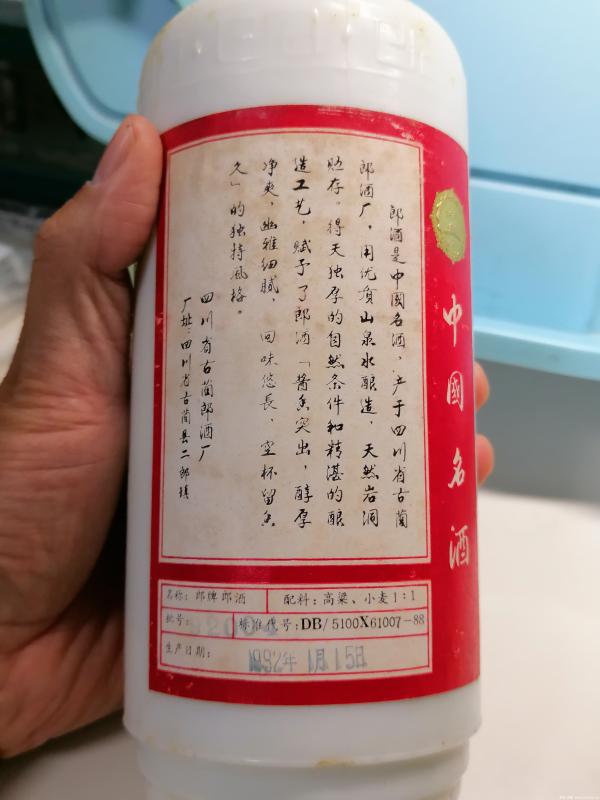 郎酒是中國名酒，产于四川省古蔺
郎酒厂，用优质山泉水酿造，天然岩洞
贮存。得天独厚的自然条件和精湛的酿
造工艺，赋予了郎酒「酱香突出，醇厚
净爽，幽雅细腻，回味悠長，空杯留香
久」的独持風格。
四川省古蔺郎酒厂
厂址：四川省古蔺县二郎镇
中國名酒
名称：郎牌郎酒
配料：高梁、小麦1:1
批号：
标准代号：DB/5100X61007-88
生产日期：
1992年1月15日